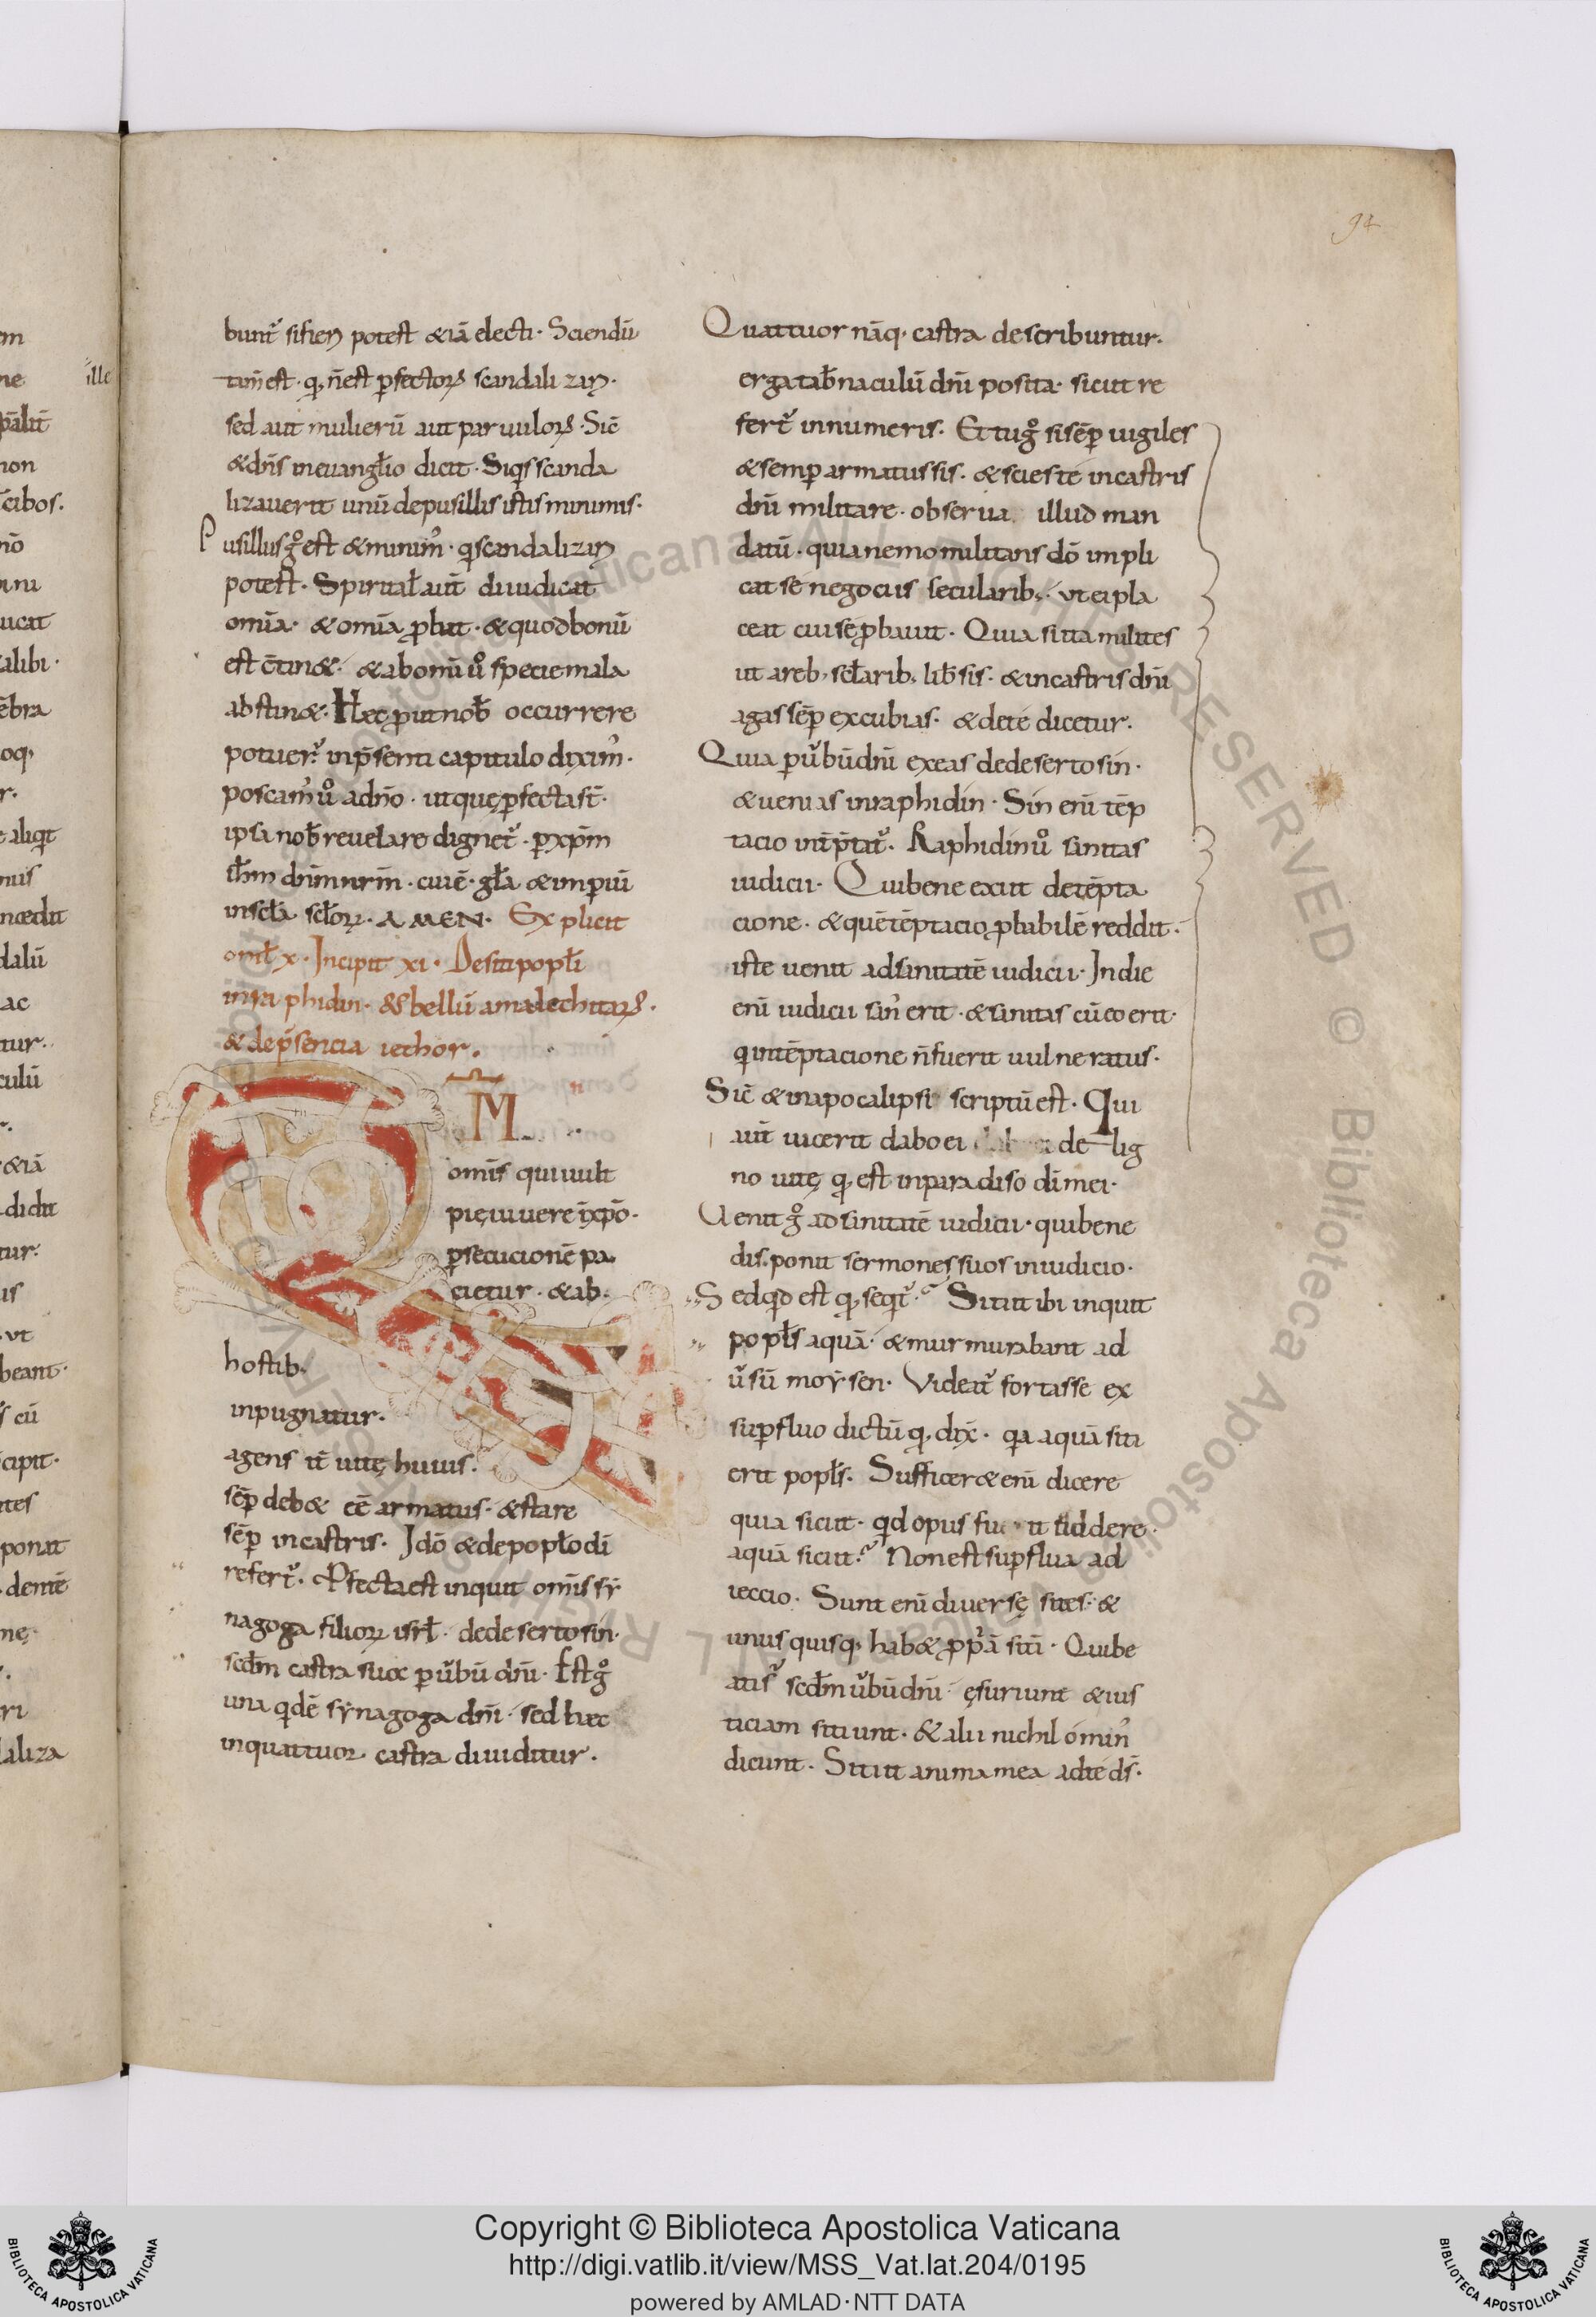 94
bunt᷑ si fieri potest &iā electi. Sciendū
tam̄ est. q̨ n̄ est p̱fectoꝝ scandalizari.
sed aut mulierū aut paruuloꝝ. Sic̄
& dn̄s in euangl̄io dicit. Siq̱s scanda
lizauerit unū de pusillis istis minimis.
Pusillus gͦ est & minim᷒. q̱ scandalizari
potest. Spirital̄ aut̄ diiudicat
omīa. & omīa ꝓbat. & quod bonū
est c̄tin&. & ab omī uͦ specie mala
abstin&. Hec ꝓut nob̄ occurrere
potuer᷑ in p̄senti capitulo dixim᷒.
poscam᷒ uͦ a dn̄o. ut quę ꝑfecta st̄.
ipsa nob̄ reuelare dignet᷑. ꝑ xp̄m
ih̄m dn̄m nr̄m. cui ē. gl̄a & imꝑiū
in sc̄la sc̄loꝝ. AMEN. Explicit
omł x. Incipit xi. De siti popl̄i
in raphidin. & bellū amalechitaꝝ.
& de p̄sencia iethor.
M
omīs qui uult
pię uiuere ī xp̄o.
ꝑsecucionē pa
cietur. & ab
hostib.
inpugnatur.
agens it̄ uitę huius.
sēꝑ deb& eē armatus. & stare
sēꝑ in castris. Idō & de popl̄o dī
refert᷑. Ꝓfecta est inquit omīs sẏ
nagoga filioꝝ isrł. de deserto sin.
sc̄dm castra sua ꝑ u᷑bū dn̄i. Est gͦ
una q̱dē sẏnagoga dn̄i. sed hec
in quattuor castra diuiditur.
Quattuor nāq. castra describuntur.
erga tab̄naculū dn̄i posita. sicut re
fert᷑ in numeris. Et tu gͦ si sēꝑ uigiles
& semꝑ armatus sis. & scies te in castris
dn̄i militare. obserua illud man
datū. quia nemo militans dō impli
cat se negociis secularib;. ut ei pla
ceat cui se ꝓbauit. Quia si ita milites
ut a reb; scl̄arib; lib̄ sis. & in castris dn̄i
agas sēꝑ excubias. & de te dicetur.
Quia ꝑ u᷑bū dn̄i exeas de deserto sin.
& uenias in raphidin. Sin enī tēp
tacio int̄p̄tat᷑. Raphidin uͦ sanitas
iudicii. Qui bene exiit de tēpta
cione. & quē tēptacio ꝓbabilē reddit.
iste uenit ad sanitatē iudicii. In die
enī iudicii san᷒ erit. & sanitas cū eo erit.
q̱ in tēptacione n̄ fuerit uulneratus.
Sic̄ & in apocalipsi scriptū est. Qui
aut̄ uicerit dabo ei de lig
no uitę q̨ est in paradiso dī mei.
Uenit gͦ ad sanitatē iudicii. qui bene
disponit sermones suos in iudicio.
Sed q̱d est q̨ seq̱t᷑. Sitiit ibi inquit
popl̄s aquā. & murmurabant ad
u᷑sū moẏsen. Videat᷑ fortasse ex
suꝑfluo dictū q̨ dix̄. q̱a aquā siti
erit popl̄s. Sufficer& enī dicere
quia sitiit. q̱d opus fuerit addere.
aquā sitiit. Non est suꝑflua ad
ieccio. Sunt enī diuersę sites. &
unusquisq; hab& ꝓp̄ā sitī. Qui be
ati s᷑ sc̄dm u᷑bū dn̄i ęsuriunt & ius
ticiam sitiunt. & alii nichilomin᷒
dicunt. Sitiit anima mea ad te dś.
ille
Copyright © Biblioteca Apostolica Vaticana
http://digi.vatlib.it/view/MSS_Vat.lat.204/0195
powered by AMLAD·NTT DATA
BIBLIOTECA APOSTOLICA VATICANA
BIBLIOTECA APOSTOLICA VATICANA